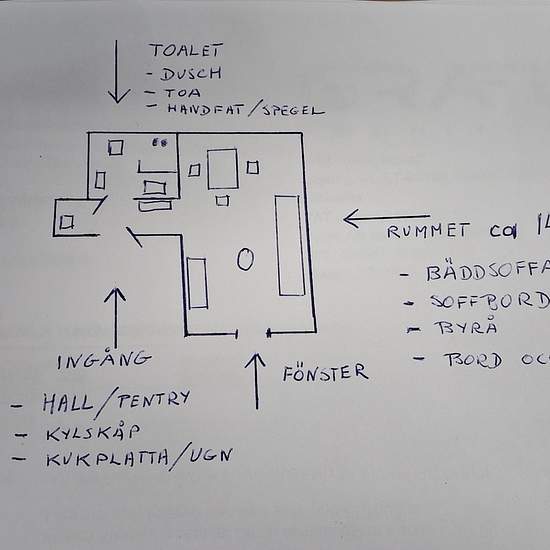 TOALET
- DUSCH
- TOA
- HANDFAT/SPEGEL
RUMMET ca 14
- BÄDDSOFFA
- SOFFBORD
- BYRÅ
- BORD OC
INGÅNG
- HALL/PENTRY
- KYLSKÅP
- KUKPLATTA/UGN
FÖNSTER